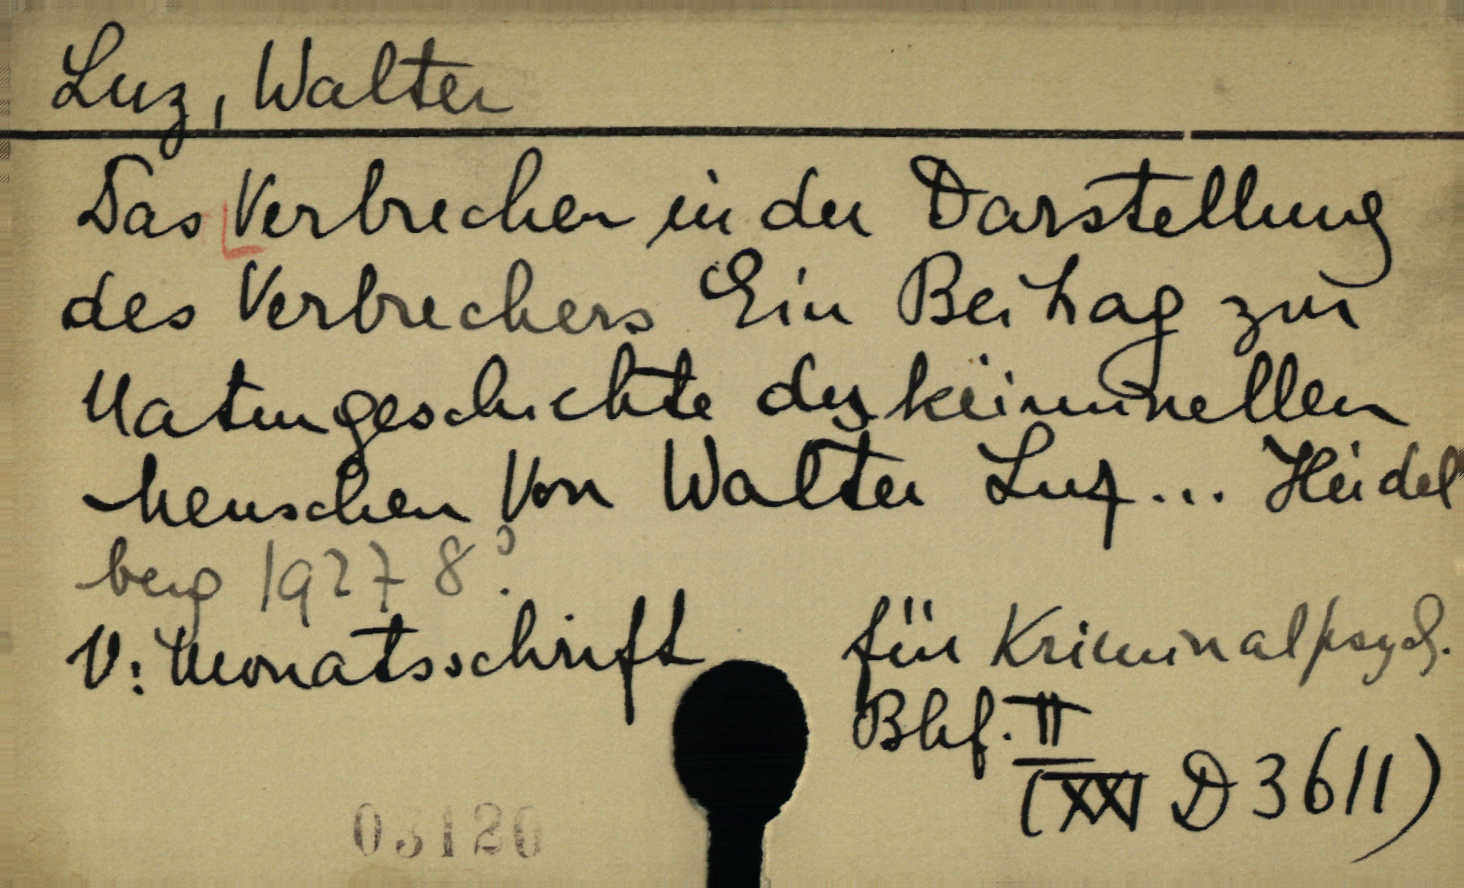 Luz, Walter
Das Verbrechen in der Darstellung
des Verbrechers Ein Beitrag zur
Naturgeschichte des kriminellen
Menschen Von Walter Luz... Heidel
berg 1927 8°.
V: Monatsschrift für Kriminalpsych.
Bhf. II
(XXI D 3611)
03120